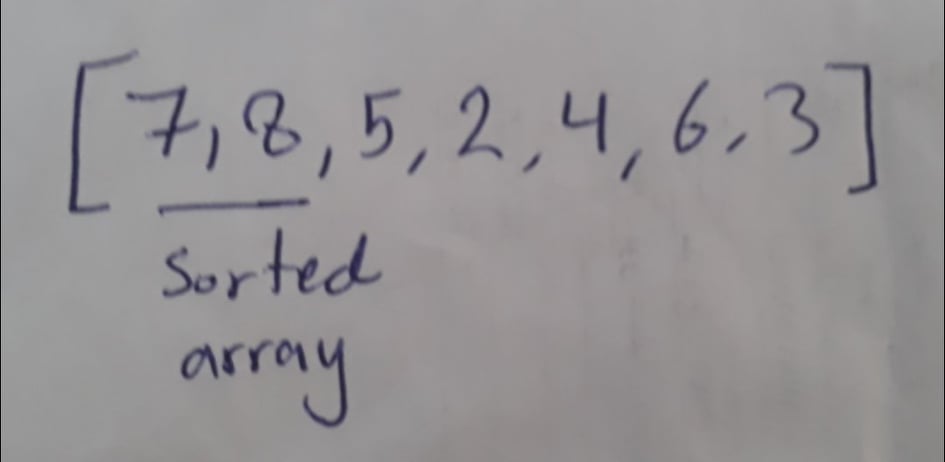 [7, 8, 5, 2, 4, 6, 3]
Sorted
array